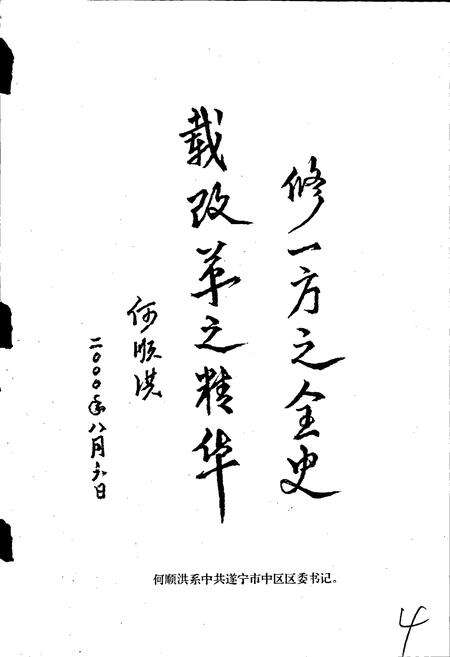 修一方之全史
载改革之精华
何顺洪
二〇〇〇年八月六日
何顺洪系中共遂宁市中区区委书记。
4